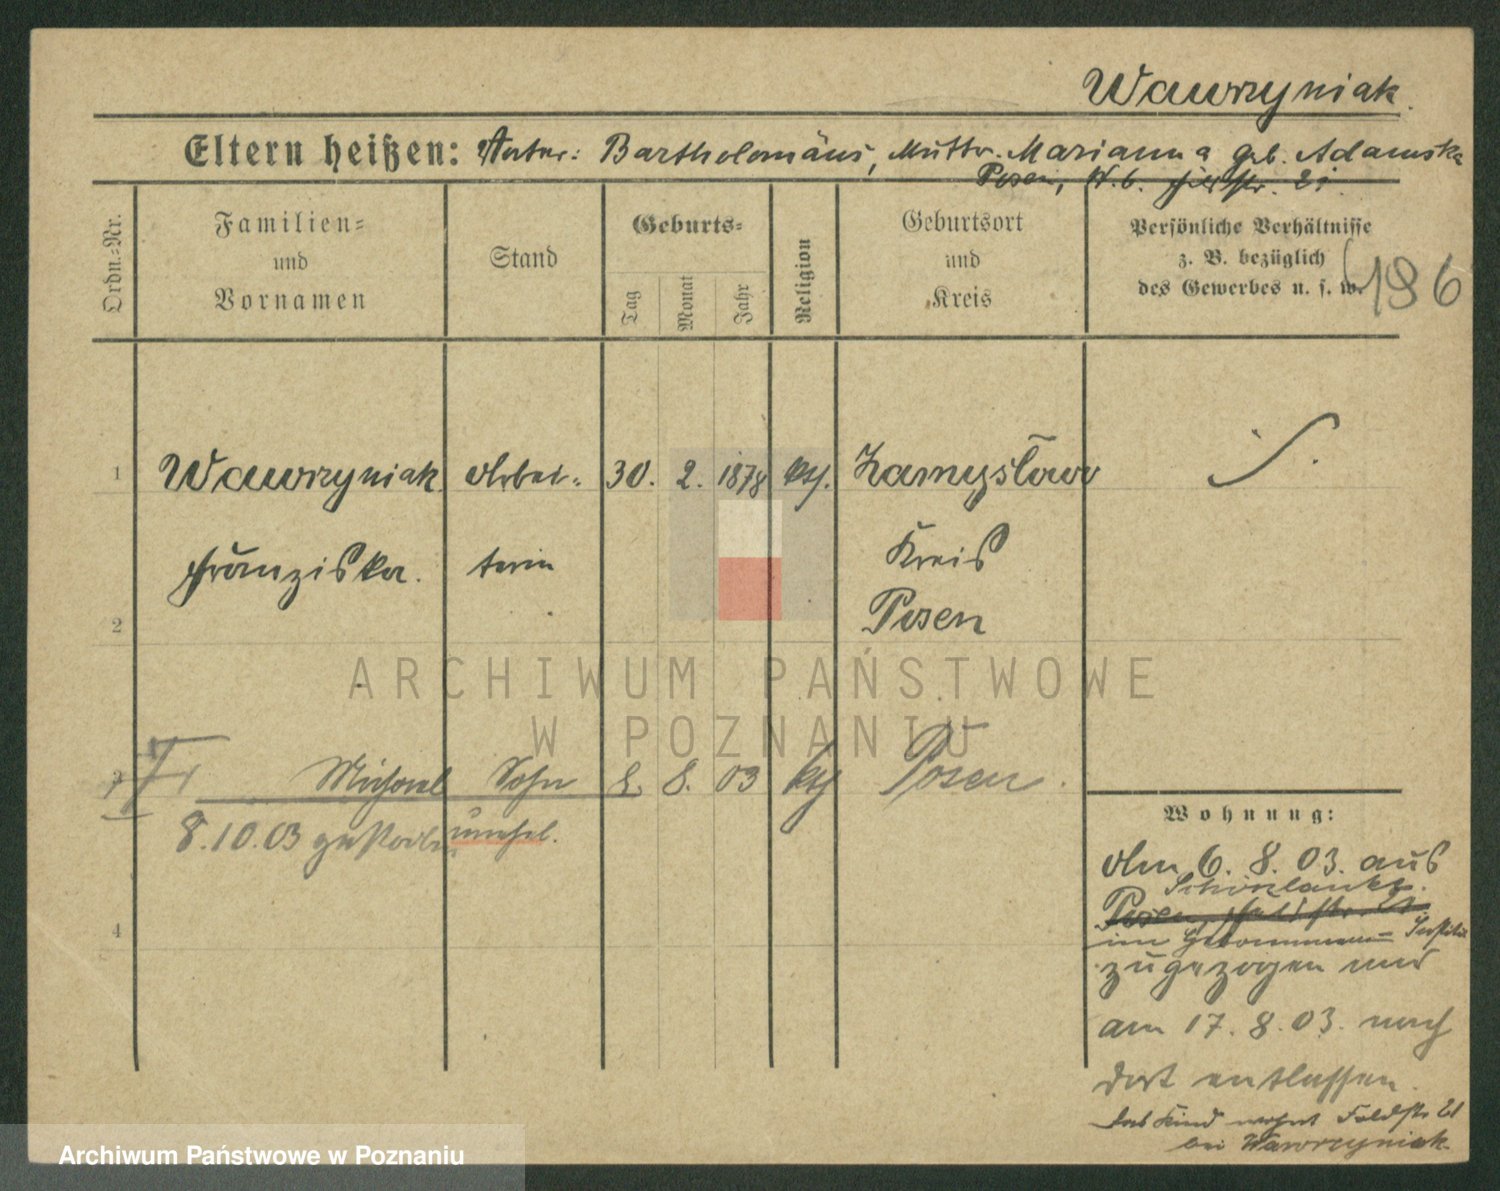 Wawrzyniak.
Eltern heißen: Vater: Bartholomäus, Mutter Marianna geb. Adamska
Posen, W. 6. Feldstr. 21.
Ordn.=Nr.
Familien=
und
Vornamen
Stand
Geburts=
Tag
Monat
Jahr
Religion
Geburtsort
und
Kreis
Persönliche Verhältnisse
z. B. bezüglich
des Gewerbes u. s. w.
196
1 Wawrzyniak Arbei= 30. 2. 1878 kth. Zamysłowo
Franziska. terin Kreis
2 Posen
3 Michael Sohn 8. 8. 03 kth Posen.
8.10.03 gestorben unehel.
4
Wohnung:
Am 6. 8. 03. aus
Schönlanke.
Posen, Feldstr. 21
im Hebammen= Institut
zugezogen und
am 17. 8. 03. nach
dort entlassen.
das Kind wohnt Feldstr 21
bei Wawrzyniak
ARCHIWUM PAŃSTWOWE
W POZNANIU
Archiwum Państwowe w Poznaniu